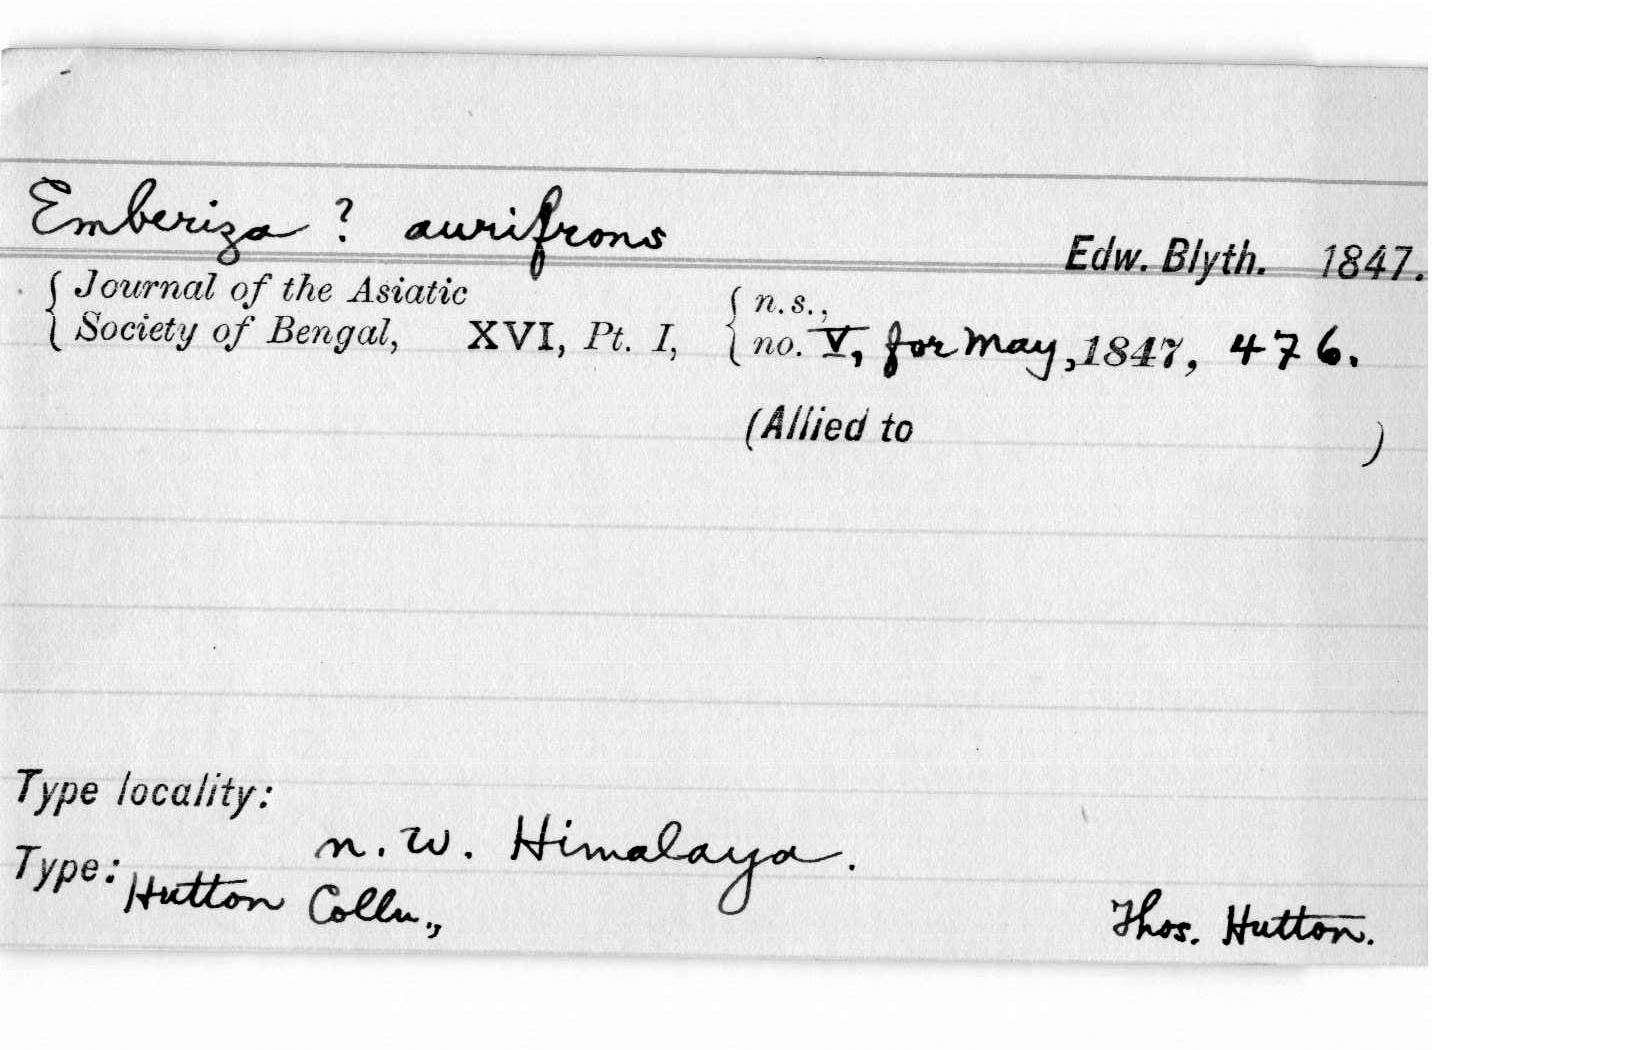 Emberiza ? aurifrons Edw. Blyth. 1847.
{ Journal of the Asiatic { n.s.,
{ Society of Bengal, XVI, Pt. I, { no. V, for May, 1847, 476.
(Allied to )
Type locality:
n. W. Himalaya.
Type: Hutton Colln., Thos. Hutton.